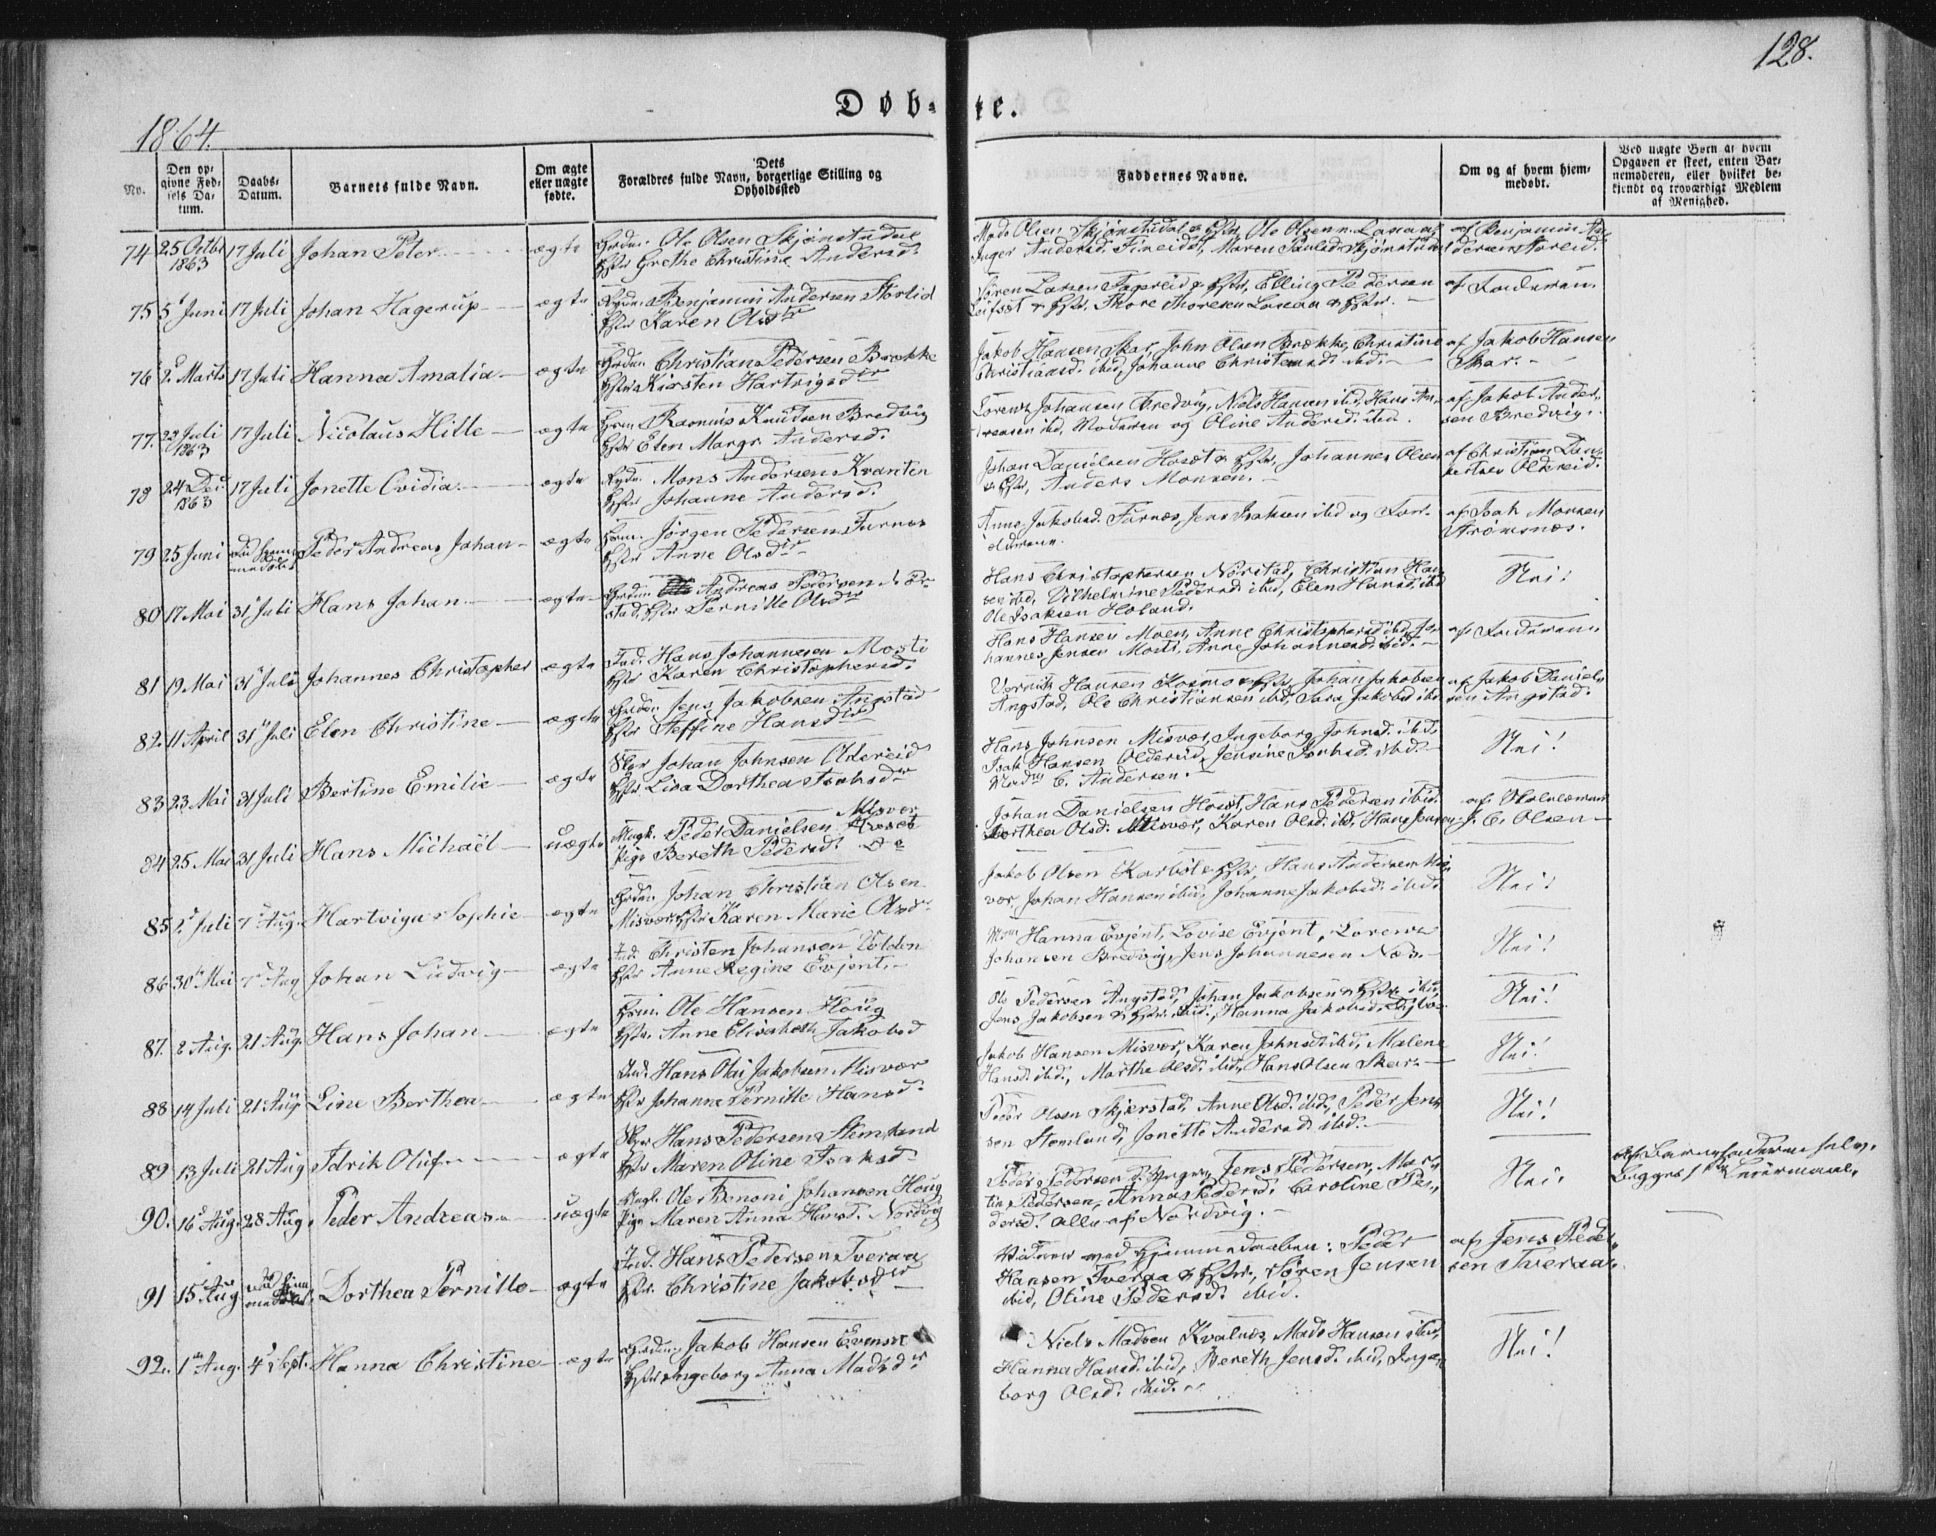 128.
Døb-te.
1864.
No.
Den op-
givne Fød-
sels Da-
tum.
Daabs-
Datum.
Barnets fulde Navn.
Om ægte
eller uægte
fødte.
Dets
Forældres fulde Navn, borgerlige Stilling og
Opholdssted
Faddernes Navne.
Om og af hvem hjem-
medøbt.
Ved uægte Børn af hvem
Opgaven er skeet, enten Bar-
nemoderen, eller hvilket be-
kjendt og troværdigt Medlem
af Menighed.
74 25 Octbr 1863 17 Juli Johan Peter ægte
Ole Olsen Skjønstudal
Grethe Christine Andersd.
Mads Olsen Skjønstudal & Ole Olsen
Inger Andersd. Fineidet, Maren
af Benjamin An-
dersen Storeid.
75 5 Juni 17 Juli Johan Hagerup ægte
Benjamin Andersen Storlid
Karen Olsdtr
Søren Larsen & Elling Pedersen
Leifset & Thore Thoresen
af Faderen.
76 2 Marts 17 Juli Hanna Amalia ægte
Christian Pedersen Brekke
Kirsten Hartvigsdtr
Jakob Hansen Skar, John Olsen Brække, Christine
Christiansd. ibid, Johanne Christensd. ibid.
af Jakob Hansen
Skar.
77. 22 Juli 1863 17 Juli Nicolaus Hitte ægte
Rasmus Knudsen Bredvig
Elen Margr. Andersd.
Lorentz Johansen Bredvig, Niels Hansen ibid, Hans An-
dreasen ibid, Moderen og Oline Andersd. ibid.
af Jakob Ander-
sen Bredvig.
78 24 Dec 1863 17 Juli Jonette Ovidia ægte
Mons Andersen Kvanten
Johanne Andersd.
Johan Danielsen Hoset & Johannes Olsen
& Anders Monsen.
af Christian
Oldereid.
79 25 Juni Peder Andreas Johan ægte
Jørgen Pedersen Furnes
Anne Olsdtr
Anne Jakobsd. Furnæs, Jens Isaksen ibid og For-
ældrene.
af Isak Monsen
Strømsnæs.
80 17 Mai 31 Juli Hans Johan ægte
Andreas Pedersen
Pernille Olsdtr
Hans Christophersen Nørstad, Christian Han-
sen ibid, Vilhelmine Pedersd. ibid, Elen Hansd. ibid
Ole Isaksen Holand.
Nei!
81 19 Mai 31 Juli Johannes Christopher ægte
Hans Johannesen Mosti
Karen Christophersd.
Hans Hansen Moen, Anne Christophersd. ibid, Jo-
hannes Jensen Mosti, Anne Johannesd. ibid.
af Faderen
82. 11 April 31 Juli Elen Christine ægte
Jens Jakobsen Angstad
Steffine Hansdtr
Hansen Kosmo & Johan Jakobsen
Angstad, Ole Christiansen ibid, Sara Jakobsd. ibid
af Jakob Daniel-
sen Angstad.
83 23 Mai 31 Juli Bertine Emilie ægte
Johan Johnsen Oldereid
Lisa Dorthea Isaksdr
Hans Johnsen Misvær, Ingeborg Johnsd. ibid,
Isak Hansen Oldereid, Jensine Isaksd. ibid
C. Andersen.
Nei!
84 25 Mai 31 Juli Hans Michaël uægte
Misvær
Ungk. Peder Danielsen
Pige Bereth Pedersd. do
Johan Danielsen Hoset, Hans Pedersen ibid.
Dorthea Olsd. Misvær, Karen Olsd. ibid, Hans Jensen
af Skolelærer
J. C. Olsen
85 2 Juli 7 Aug. Hartviga Sophie ægte
Johan Christian Olsen
Misvær Karen Marie Olsdr
Jakob Olsen Karbøl & Hans Andersen Mis-
vær, Johan Hansen ibid, Johanne Jakobsd. ibid.
Nei!
86 30 Mai 7 Aug Johan Ludvig ægte
Christen Johansen Volden
Anne Regine Evjent.
Hanna Evjent, Lovise Evjent, Lorentz
Johansen Bredvig, Jens Johannesen Næs.
Nei!
87. 8 Aug. 21 Aug. Hans Johan ægte
Ole Hansen Høug
Anne Elisabeth Jakobsd
Ole Pedersen Angstad, Johan Jakobsen & ibid,
Jens Jakobsen & ibid., Hanna Jakobsd.
Nei!
88 14 Juli 21 Aug Line Berthea ægte
Hans Olai Jakobsen Misvær
Johanna Pernille Hansd.
Jakob Hansen Misvær, Karen Johnsd. ibid, Malene
Hansd. ibid., Marthe Olsd. ibid, Hans Olsen Skar.
Nei!
89 13 Juli 21 Aug Idrik Oluf ægte
Hans Pedersen Stemland
Maren Oline Isaksd
Peder Olsen Skjerstad, Anne Olsd. ibid., Peder Jen-
sen Stemland, Jonette Andersd. ibid.
Nei!
90. 16 Aug. 28 Aug. Peder Andreas. uægte
Ungk. Ole Benoni Johansen Høug
Pige Maren Anna Hansd. Nordvig
Peder Pedersen Jens Pedersen, Mar-
tin Pedersen, Anna Pedersd. Caroline Pe-
dersd. alle af Nordvig.
Nei.
Af Barnefaderen selv.
Begges 1ste Leiermaal.
91 15 Aug Dorthea Pernille ægte
Hans Pedersen Tveraa
Christine Jakobsdtr
Vidner ved Hjemmedaaben: Peder
Hansen Tveraa & Søren Jensen
ibid, Oline Pedersd. ibid.
af Jens Peder-
sen Tveraa.
92. 1 Aug. 4 Sept. Hanna Christine ægte
Jakob Hansen Evenset
Ingeborg Anna Madsdtr
Niels Madsen Kvalnes, Mads Hansen ibid,
Hanna Hansd. ibid, Bereth Jensd. ibid, Inge-
borg Olsd. ibid.
Nei!